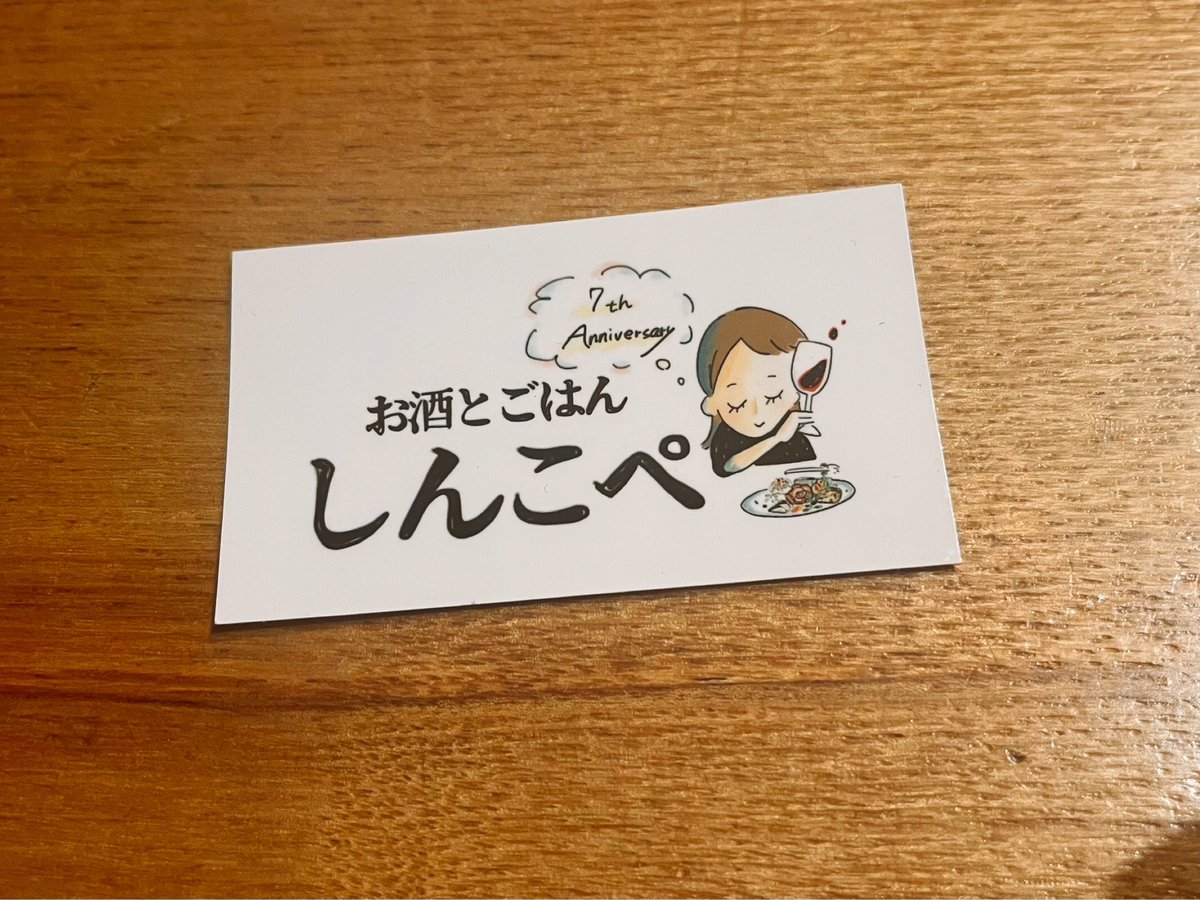 7th
Anniversary
お酒とごはん
しんこぺ